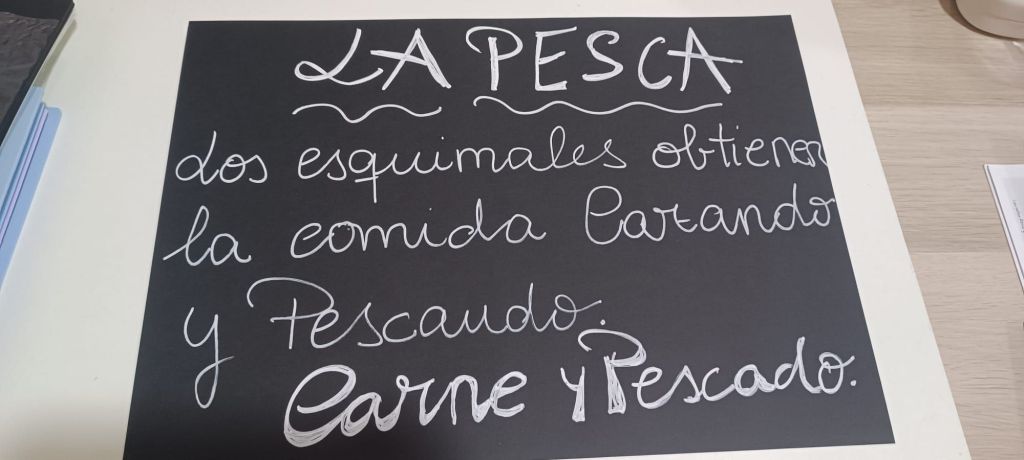 LA PESCA
Los esquimales obtienen
la comida Cazando
y Pescando.
Carne y Pescado.